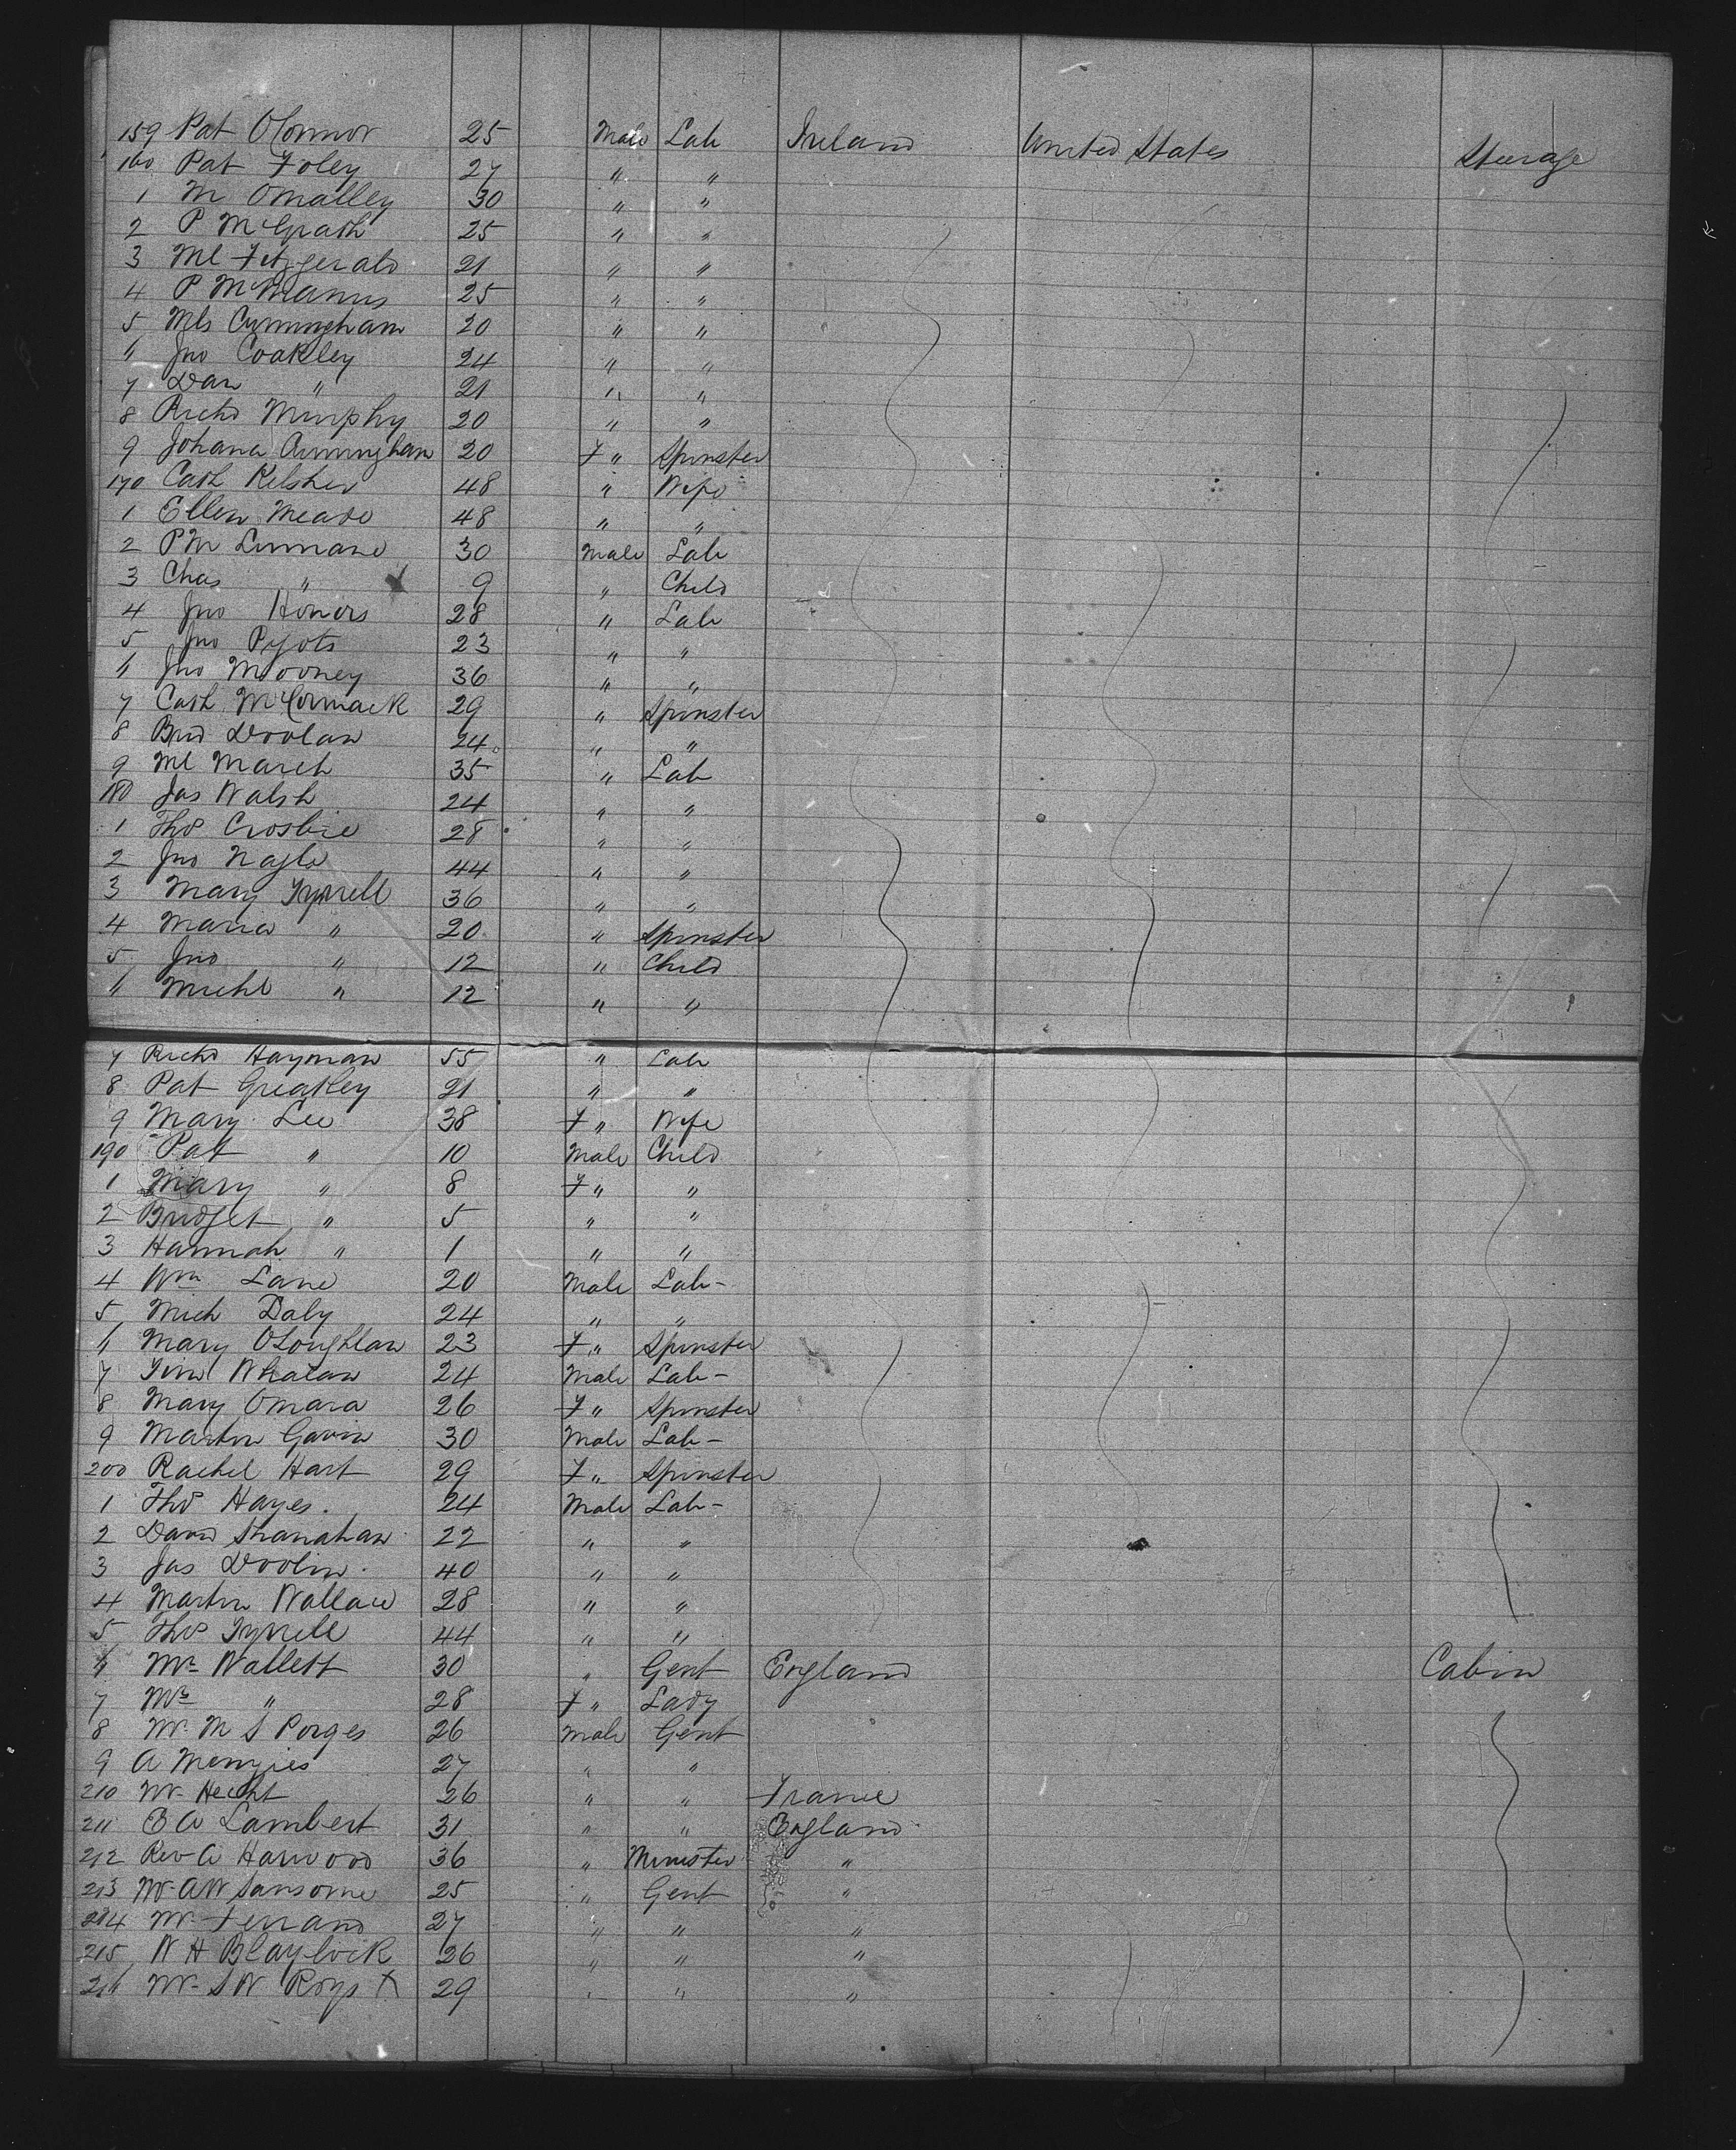 159 Pat OConnor 25 Male Lab Ireland United States Steerage
160 Pat Foley 27 " "
1 M Omalley 30 " "
2 P McGrath 25 " "
3 Ml Fitzgerald 21 " "
4 P McManus 25 " "
5 Mls Cunningham 20 " "
" Jno Coakley 24 " "
7 Dan " 21 " "
8 Richd Murphy 20 " "
9 Johana Cunningham 20 F " Spinster
170 Cath Kelsher 48 " Wife
1 Ellen Meade 48 " "
2 PM Linnane 30 Male Lab
3 Chas " 9 " Child
4 Jno Honors 28 " Lab
5 Jno Pyots 23 " "
" Jno Mooney 36 " "
7 Cath McCormack 29 " Spinster
8 Brid Doolan 24 " "
9 Ml March 35 " Lab
180 Jas Walsh 24 " "
1 Thos Crosbie 28 " "
2 Jno Nagle 44 " "
3 Mary Tyrrell 36 " "
4 Maria " 20 " Spinster
5 Jno " 12 " Child
" Michl " 12 " "
7 Richd Hayman 55 " Lab
8 Pat Greatley 21 " "
9 Mary Lee 38 F " Wife
190 Pat " 10 Male Child
1 Mary " 8 F " "
2 Bridget " 5 " "
3 Hannah " 1 " "
4 Wm Lane 20 Male Lab-
5 Mich Daly 24 " "
" Mary OLoughlan 23 F " Spinster
7 Tim Whalan 24 Male Lab-
8 Mary Omara 26 F " Spinster
9 Martin Gavin 30 Male Lab-
200 Rachel Hart 29 F " Spinster
1 Thos Hayes. 24 Male Lab-
2 David Shanahan 22 " "
3 Jas Doolin. 40 " "
4 Martin Wallace 28 " "
5 Thos Tyrrell 44 " "
" Mr Wallett 30 " Gent England Cabin
7 Mrs " 28 F " Lady
8 Mr M S Porges 26 Male Gent
9 A Menzies 27 " "
210 Mr Hecht 26 " " France
211 E A Lambert 31 " " England
212 Rev A Harwood 36 " Minister "
213 Mr AW Sansome 25 " Gent "
214 Mr Ferrand 27 " " "
215 W H Blaylock 26 " " "
21" Mr S W Roys X 29 " " "